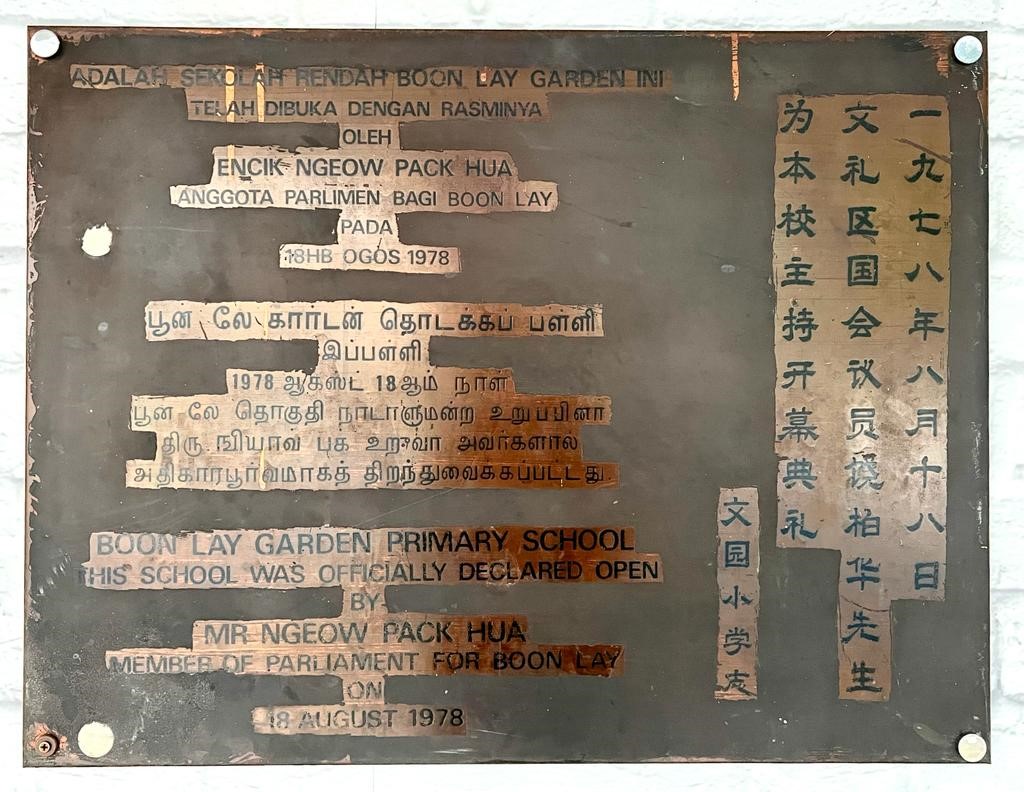 ADALAH SEKOLAH RENDAH BOON LAY GARDEN INI
TELAH DIBUKA DENGAN RASMINYA
OLEH
ENCIK NGEOW PACK HUA
ANGGOTA PARLIMEN BAGI BOON LAY
PADA
18HB OGOS 1978
பூன் லே கார்டன் தொடக்கப் பள்ளி
இப்பள்ளி
1978 ஆகஸ்ட் 18ஆம் நாள்
பூன் லே தொகுதி நாடாளுமன்ற உறுப்பினர்
திரு ஙியாவ் பக் ஹுவா அவர்களால்
அதிகாரபூர்வமாகத் திறந்துவைக்கப்பட்டது
BOON LAY GARDEN PRIMARY SCHOOL
THIS SCHOOL WAS OFFICIALLY DECLARED OPEN
BY
MR NGEOW PACK HUA
MEMBER OF PARLIAMENT FOR BOON LAY
ON
18 AUGUST 1978
一九七八年八月十八日
文礼区国会议员饶柏华先生
为本校主持开幕典礼
文园小学